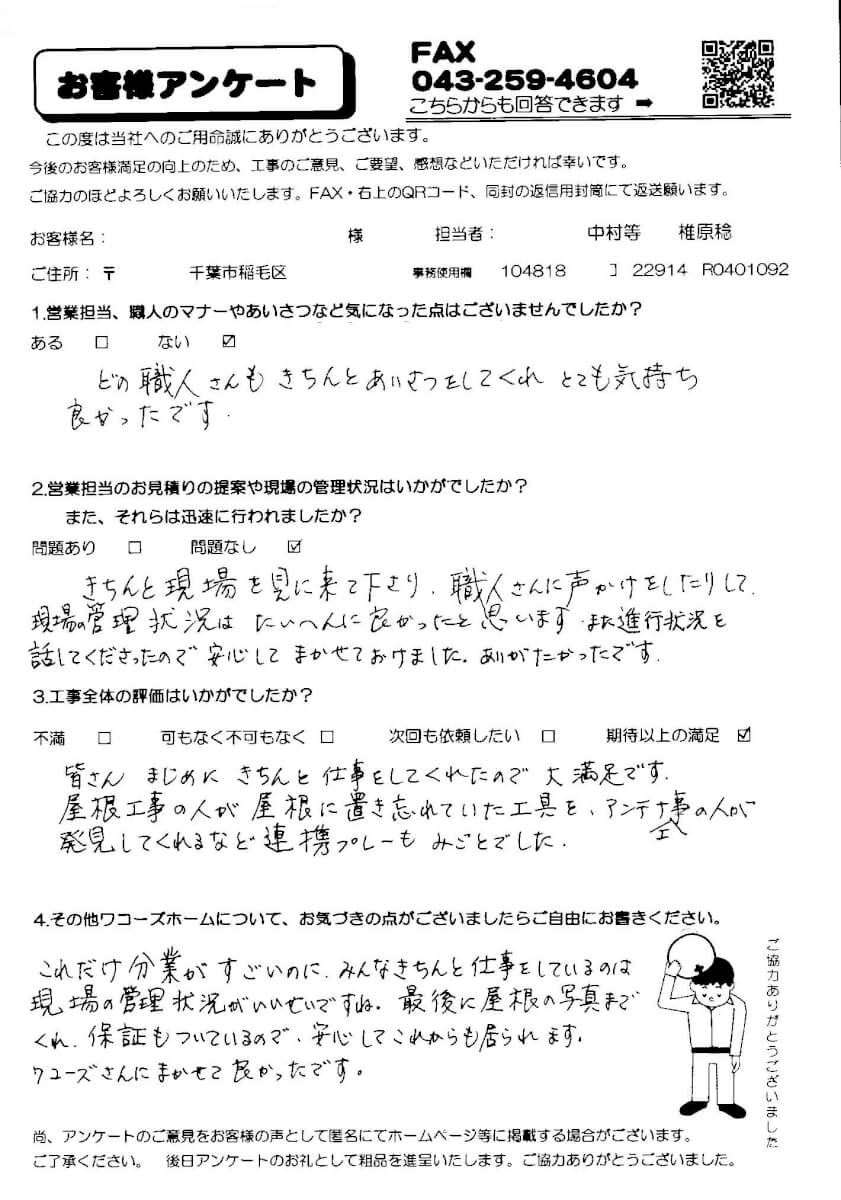 お客様アンケート
FAX
043-259-4604
こちらからも回答できます ➡
この度は当社へのご用命誠にありがとうございます。
今後のお客様満足の向上のため、工事のご意見、ご要望、感想などいただければ幸いです。
ご協力のほどよろしくお願いいたします。FAX・右上のQRコード、同封の返信用封筒にて返送願います。
お客様名： 様 担当者： 中村等 椎原稔
ご住所：〒 千葉市稲毛区 事務使用欄 104818 コ 22914 R0401092
1.営業担当、職人のマナーやあいさつなど気になった点はございませんでしたか？
ある □ ない ☑
どの職人さんもきちんとあいさつをしてくれとても気持ち
良かったです.
2.営業担当のお見積りの提案や現場の管理状況はいかがでしたか？
また、それらは迅速に行われましたか？
問題あり □ 問題なし ☑
きちんと現場を見に来て下さり、職人さんに声かけをしたりして、
現場の管理状況はたいへんに良かったと思います.また進行状況を
話してくださったので安心してまかせておけました.ありがたかったです.
3.工事全体の評価はいかがでしたか？
不満 □ 可もなく不可もなく □ 次回も依頼したい □ 期待以上の満足 ☑
皆さんまじめにきちんと仕事をしてくれたので大満足です.
屋根工事の人が屋根に置き忘れていた工具を、アンテナ工事の人が
発見してくれるなど連携プレーもみごとでした.
4.その他ワコーズホームについて、お気づきの点がございましたらご自由にお書きください。
これだけ分業がすごいのに、みんなきちんと仕事をしているのは
現場の管理状況がいいせいですね. 最後に屋根の写真まで
くれ、保証もついているので、安心してこれからも居られます.
ワコーズさんにまかせて良かったです。
ご協力ありがとうございました
尚、アンケートのご意見をお客様の声として匿名にてホームページ等に掲載する場合がございます。
ご了承ください。 後日アンケートのお礼として粗品を進呈いたします。ご協力ありがとうございました。